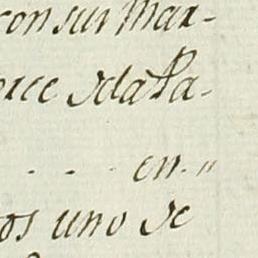 con sus Mar-
orce de la Pa-
. . . . en. "
tos uno de